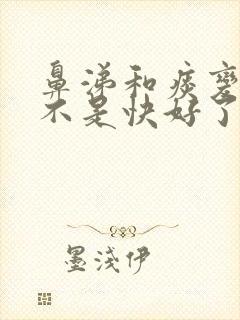 鼻涕和痰变
不是快好了
墨浅伊